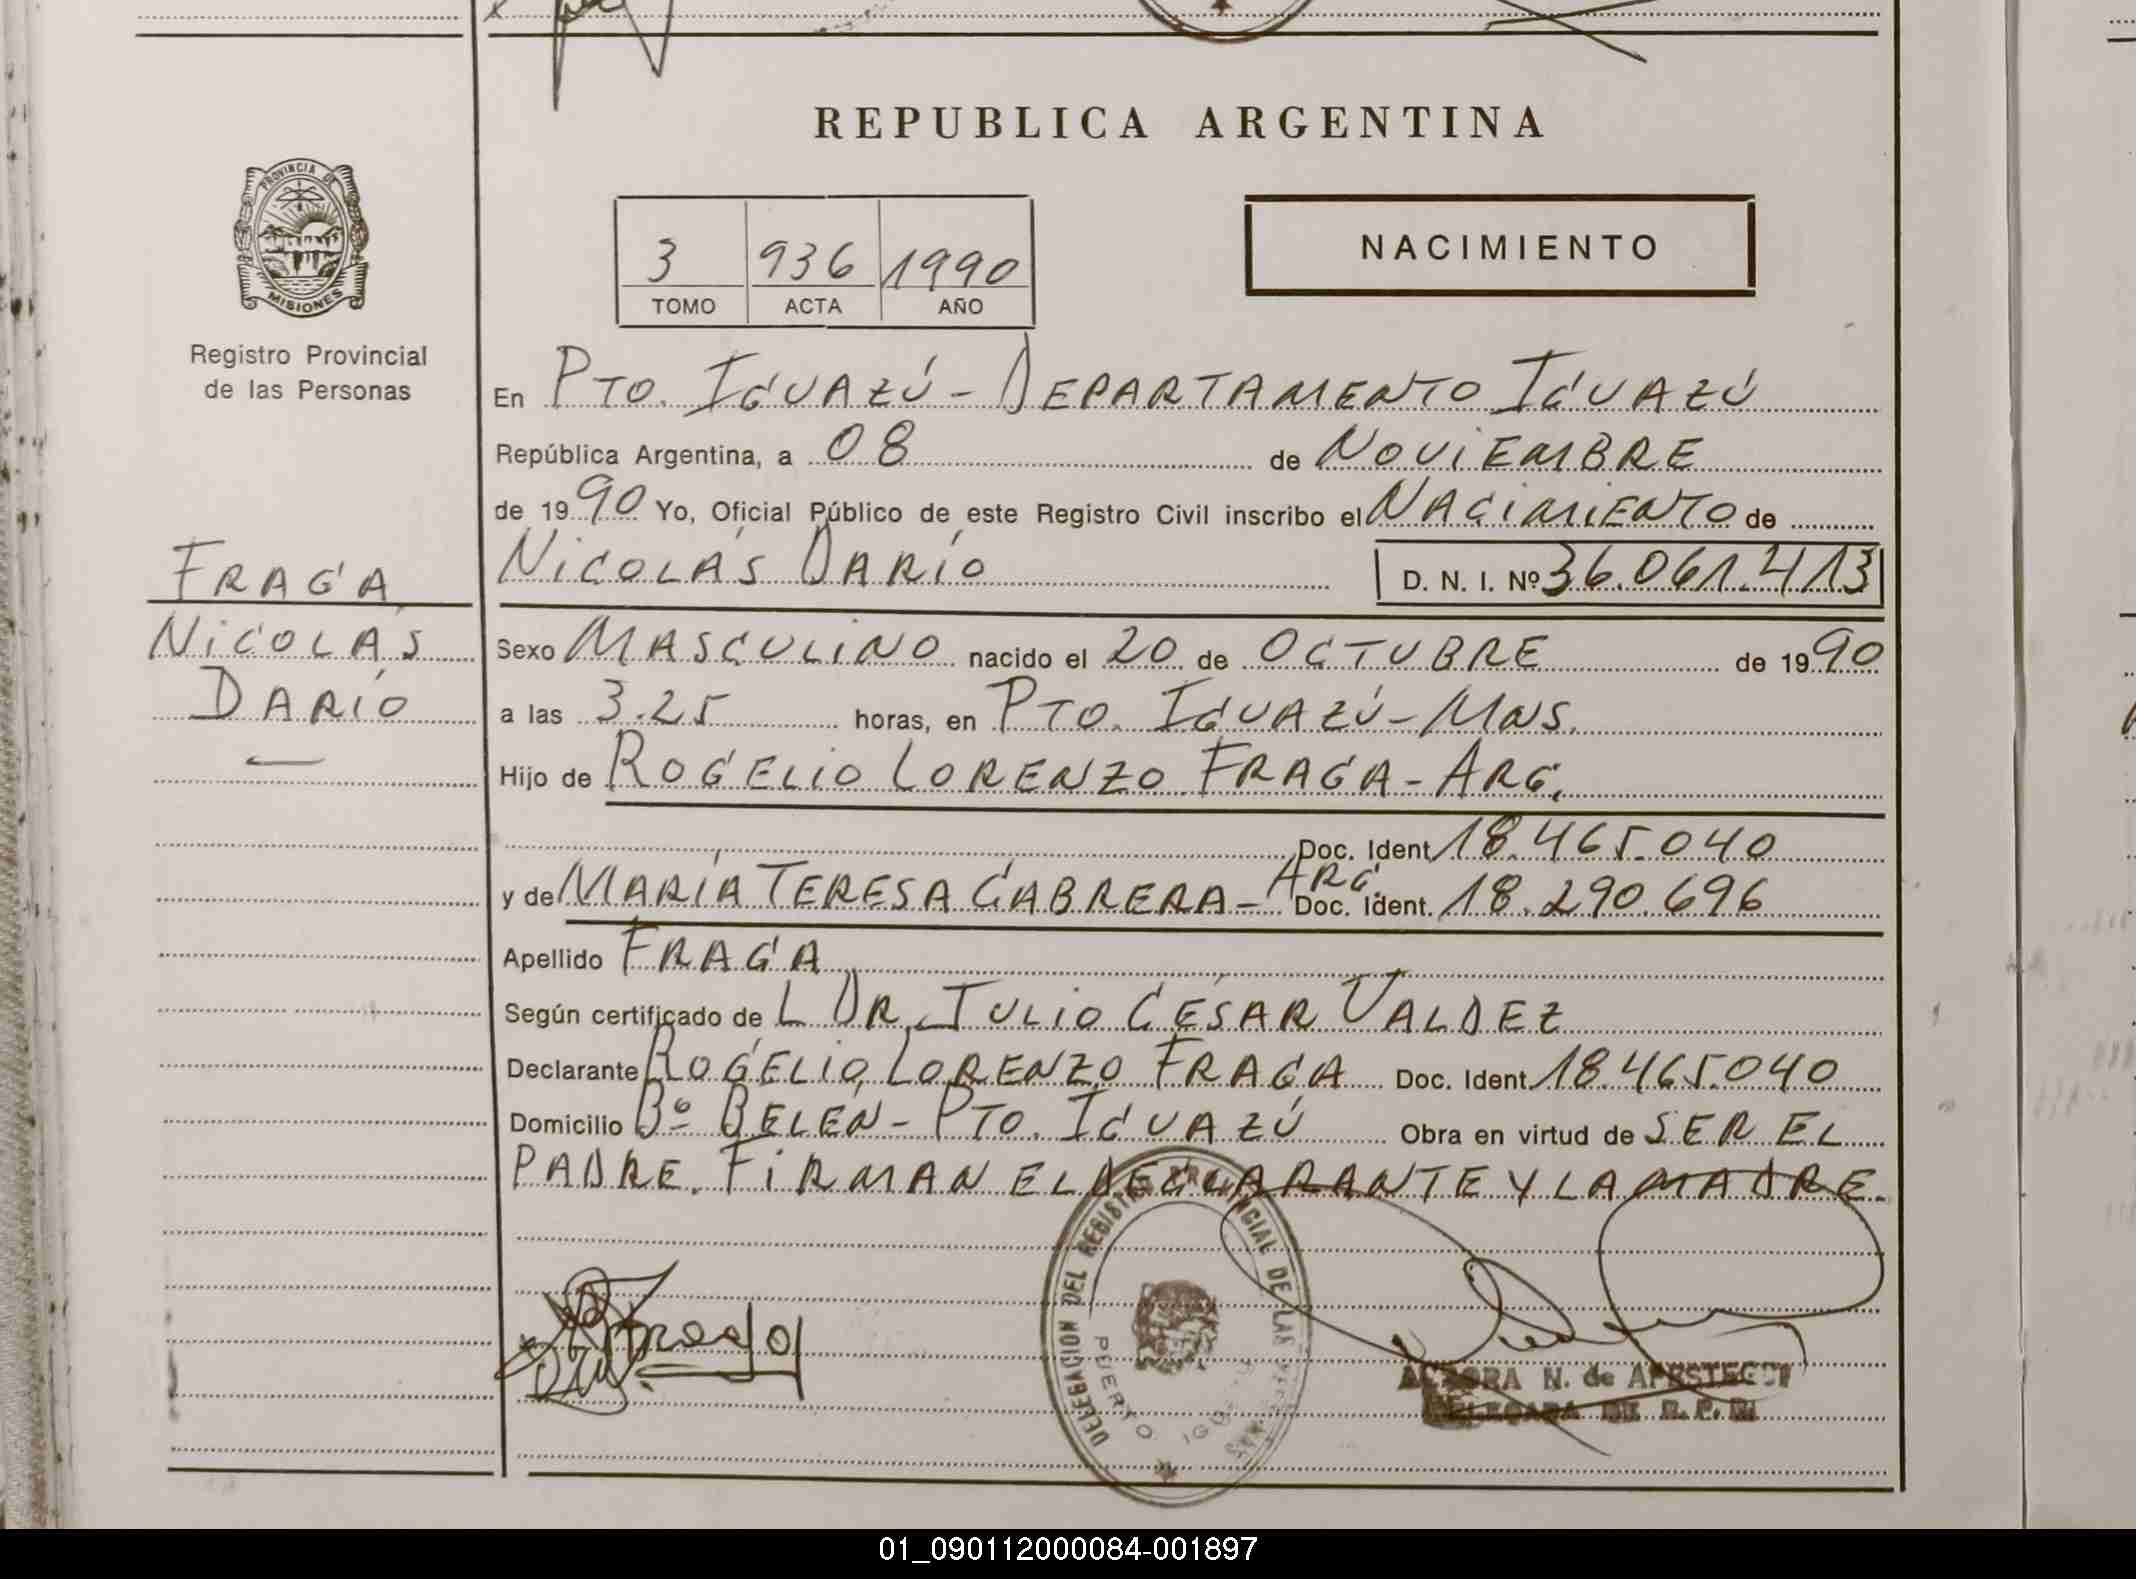 REPUBLICA ARGENTINA
PROVINCIA DE
MISIONES
Registro Provincial
de las Personas
3 936 1990
TOMO ACTA AÑO
NACIMIENTO
En PTO. IGUAZÚ - DEPARTAMENTO IGUAZÚ
República Argentina, a 08 de NOVIEMBRE
de 1990 Yo, Oficial Público de este Registro Civil inscribo el NACIMIENTO de
NICOLÁS DARÍO D. N. I. Nº 36.061.413
FRAGA
NICOLÁS
DARÍO
Sexo MASCULINO nacido el 20 de OCTUBRE de 1990
a las 3.25 horas, en PTO. IGUAZÚ - MNS.
Hijo de ROGELIO LORENZO FRAGA - ARG.
Doc. Ident 18.465.040
y de MARÍA TERESA CABRERA - ARG. Doc. Ident. 18.290.696
Apellido FRAGA
Según certificado de L DR. JULIO CÉSAR VALDEZ
Declarante ROGELIO LORENZO FRAGA Doc. Ident 18.465.040
Domicilio Bº BELÉN - PTO. IGUAZÚ Obra en virtud de SER EL
PADRE. FIRMAN EL DECLARANTE Y LA MADRE.
DELEGACION DEL REGISTRO PROVINCIAL DE LAS
PUERTO
Fraga
N. de
DELEGADA DE R. P.
01_090112000084-001897